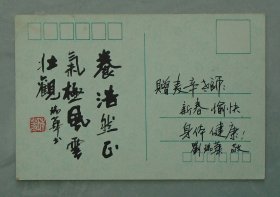 養浩然正
氣極風雲
壯觀
贈麦辛老師:
新春愉快
身体健康!
劉